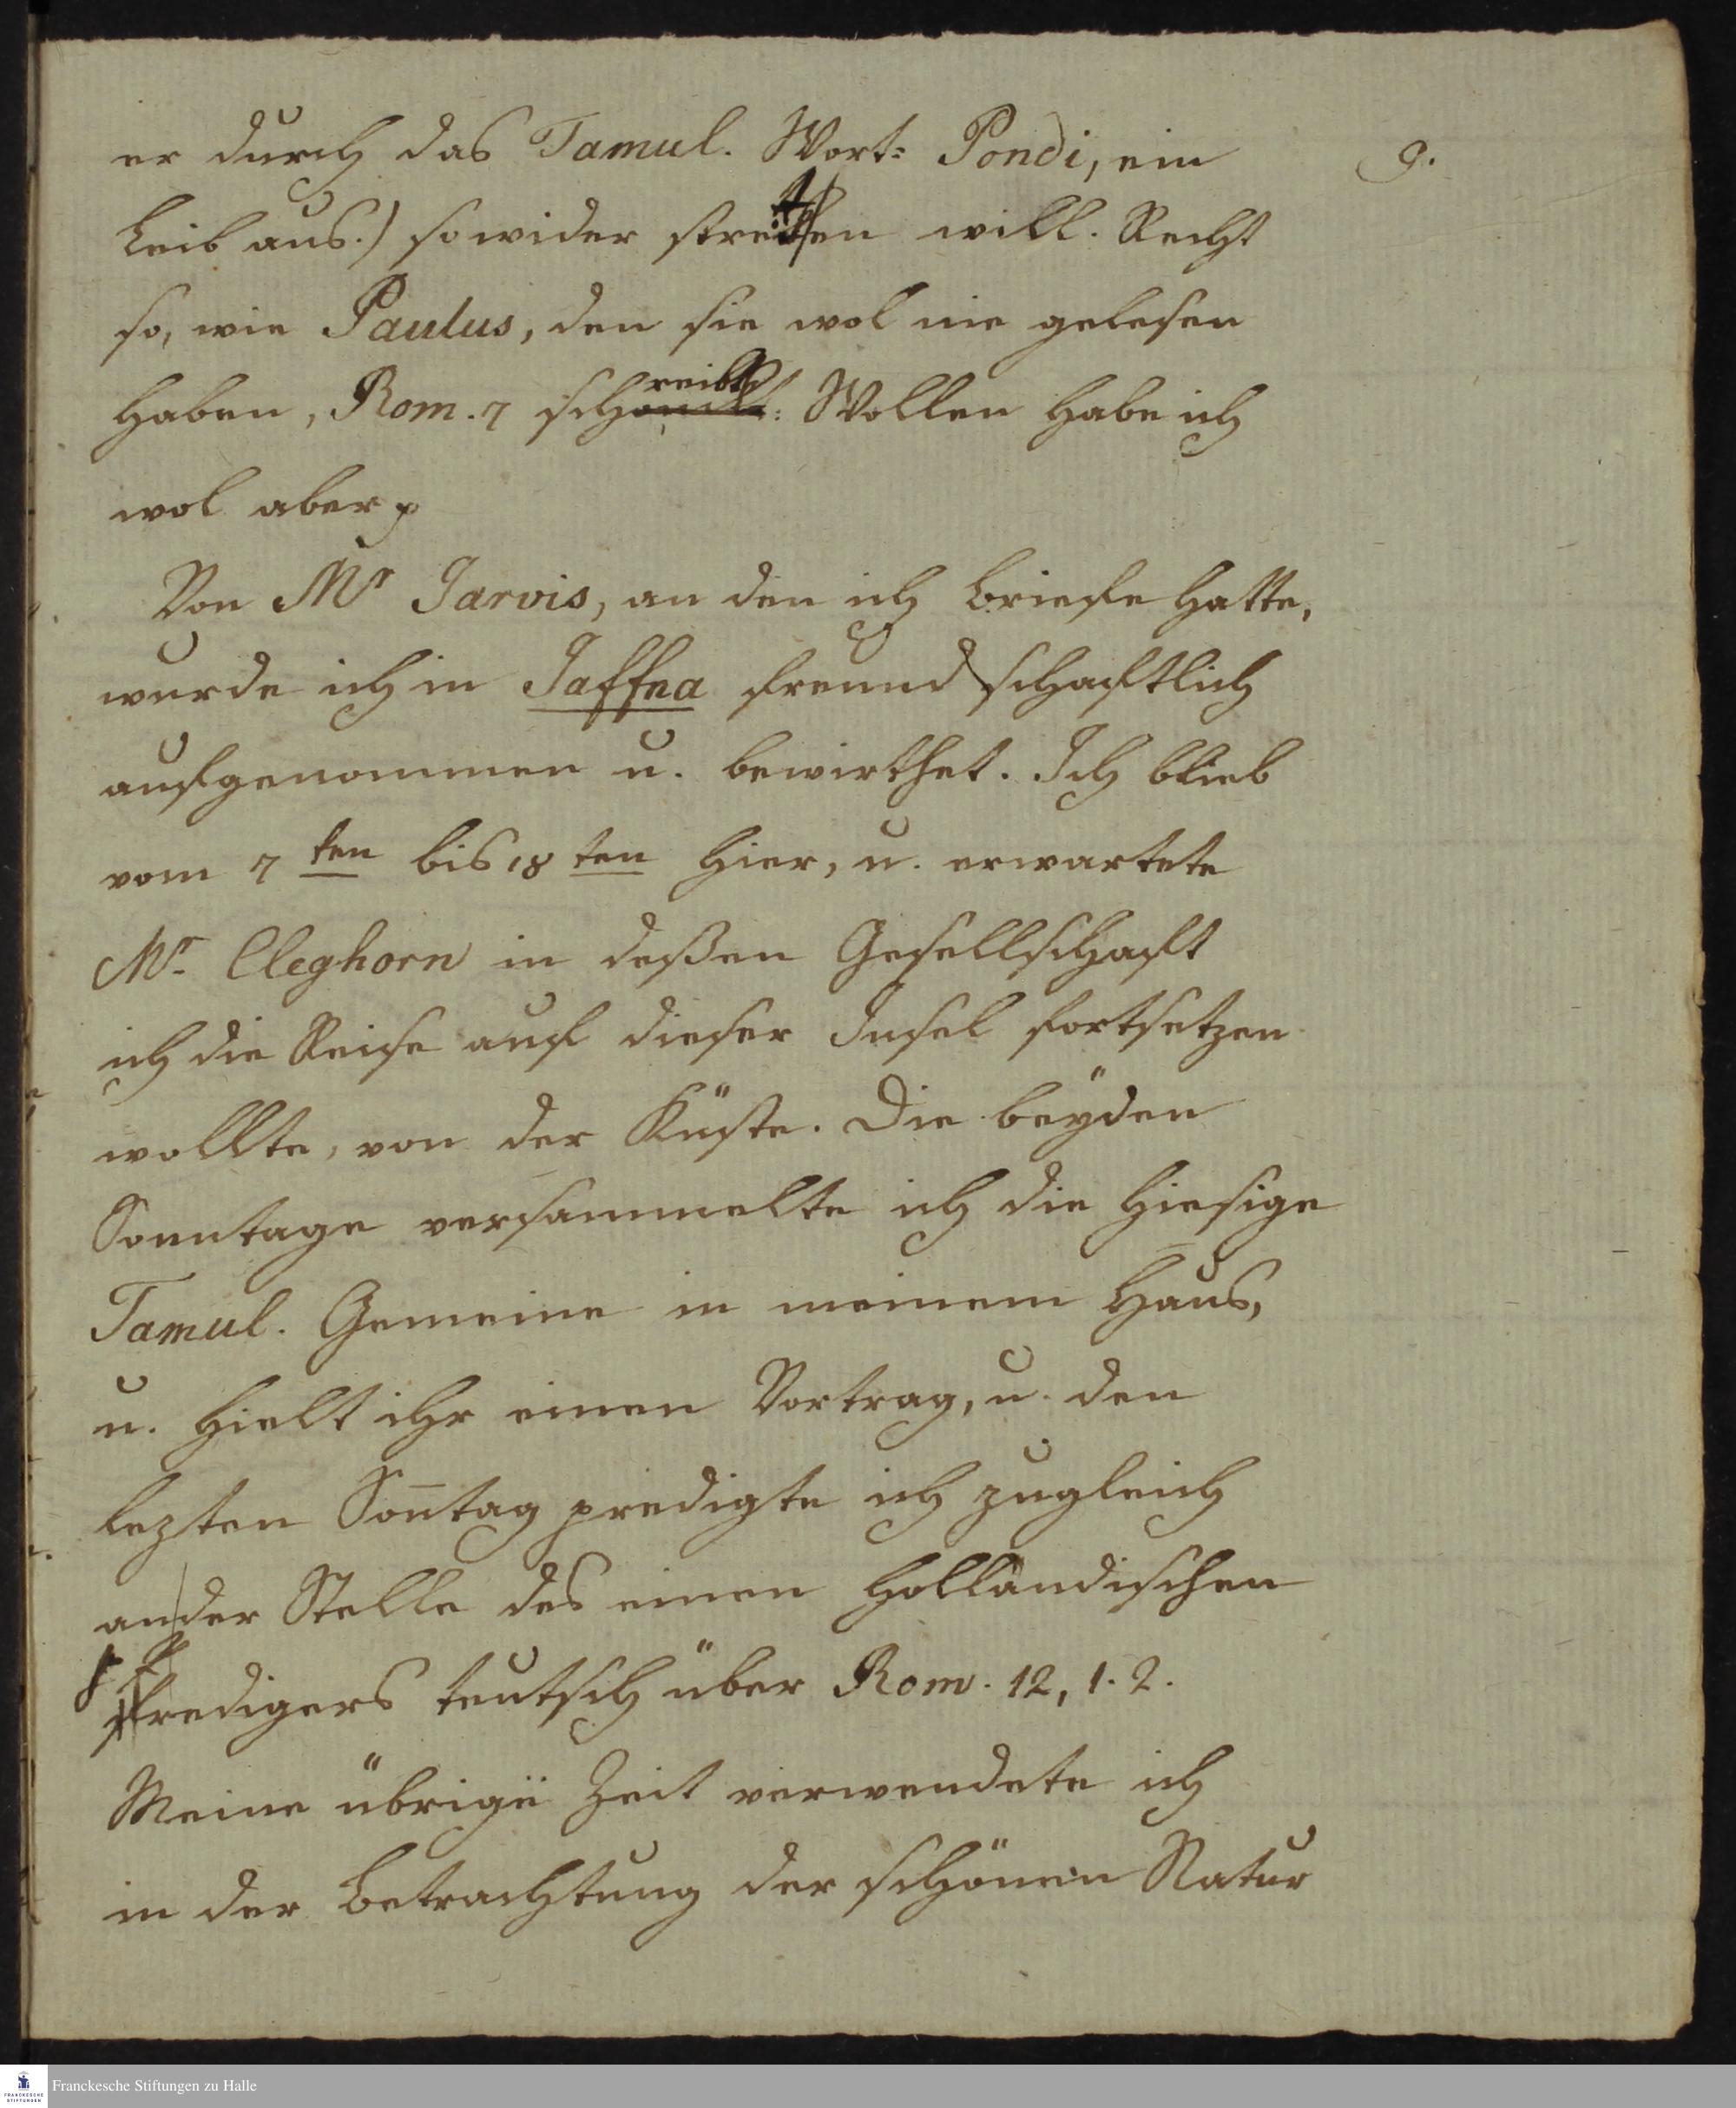 er durch das Tamul. Wort: Pondi, ein
9.
Leib aus.) so wider streiten will. Recht
so, wie Paulus, den sie wol nie gelesen
haben, Rom. 7 schreibt: Wollen habe ich
wol aber p
Von Mr Jarvis, an den ich Briefe hatte,
wurde ich in Jaffna freundschaftlich
aufgenommen u. bewirthet. Ich blieb
vom 7ten bis 18ten hier, u. erwartete
Mr. Cleghorn in deßen Gesellschaft
ich die Reise auf dieser Insel fortsetzen
wollte, von der Küste. Die beÿden
Sonntage versammelte ich die hiesige
Tamul. Gemeine in meinem Haus,
u. hielt ihr einen Vortrag, u. den
lezten Son̄tag predigte ich zugleich
an der Stelle des einen Holländischen
Predigers teutsch über Rom. 12, 1. 2.
Meine übrige Zeit verwendete ich
in der Betrachtung der schönen Natur
Franckesche Stiftungen zu Halle
FRANCKESCHE
STIFTUNGEN